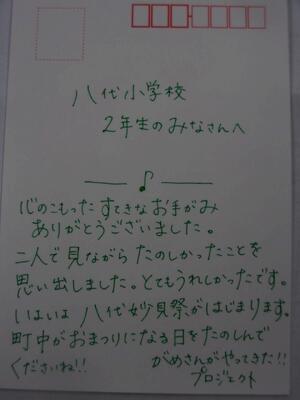 八代小学校
2年生のみなさんへ
心のこもったすてきなお手がみ
ありがとうございました。
二人で見ながらたのしかったことを
思い出しました。とてもうれしかったです。
いよいよ八代妙見祭がはじまります。
町中がおまつりになる日をたのしんで
くださいね!!
がめさんがやってきた!!
プロジェクト